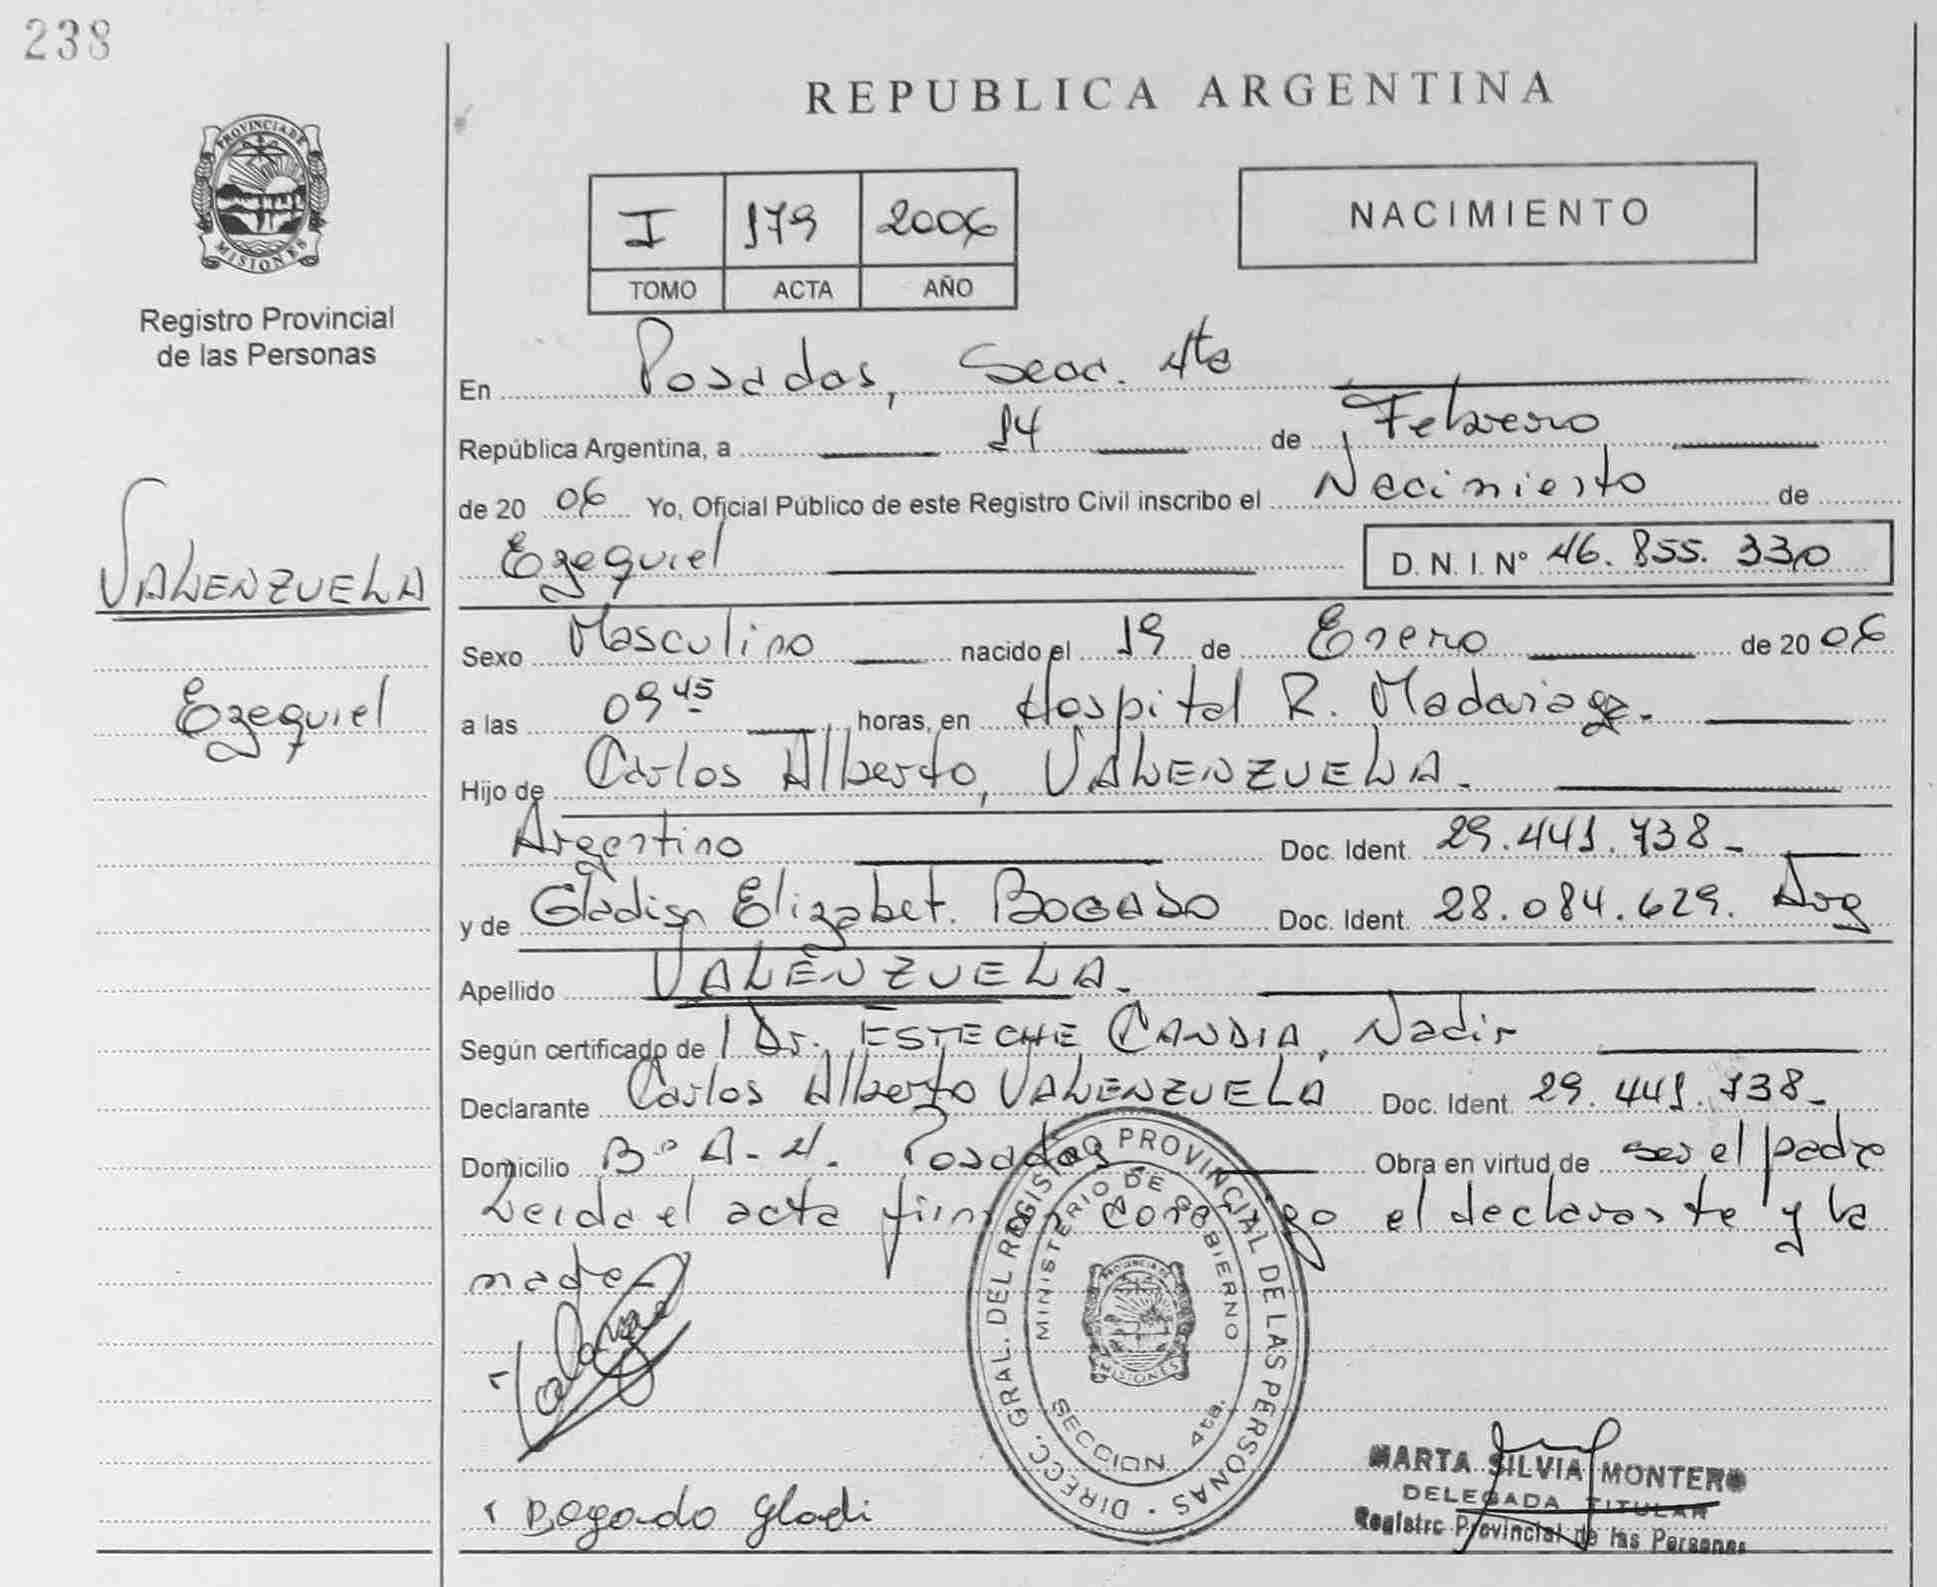 238
REPUBLICA ARGENTINA
PROVINCIA DE
MISIONES
Registro Provincial
de las Personas
I 179 2006
TOMO ACTA AÑO
NACIMIENTO
En Posadas, Secc. 4ta
República Argentina, a 14 de Febrero
de 20 06 Yo, Oficial Público de este Registro Civil inscribo el Nacimiento de
VALENZUELA
Ezequiel
Ezequiel D. N. I. N° 46.855.330
Sexo Masculino nacido el 19 de Enero de 20 06
a las 09 45 horas, en Hospital R. Madariaga.
Hijo de Carlos Alberto, VALENZUELA.
Argentino Doc. Ident. 29.441.738_
y de Elizabet. BOGADO Doc. Ident. 28.084.629. Arg
Apellido VALENZUELA.
Según certificado de Dr. ESTECHE CANDIA, Nadir
Declarante Carlos Alberto VALENZUELA Doc. Ident. 29.441.738_
Domicilio B° A-4. Posadas Obra en virtud de ser el padre
Leida el acta firman conmigo el declarante y la
madre
DIRECC. GRAL. DEL REGISTRO PROVINCIAL DE LAS PERSONAS
MINISTERIO DE GOBIERNO
PROVINCIA DE
MISIONES
SECCION 4ta.
Bogado Gladi
MARTA SILVIA MONTERO
DELEGADA TITULAR
Registro Provincial de las Personas